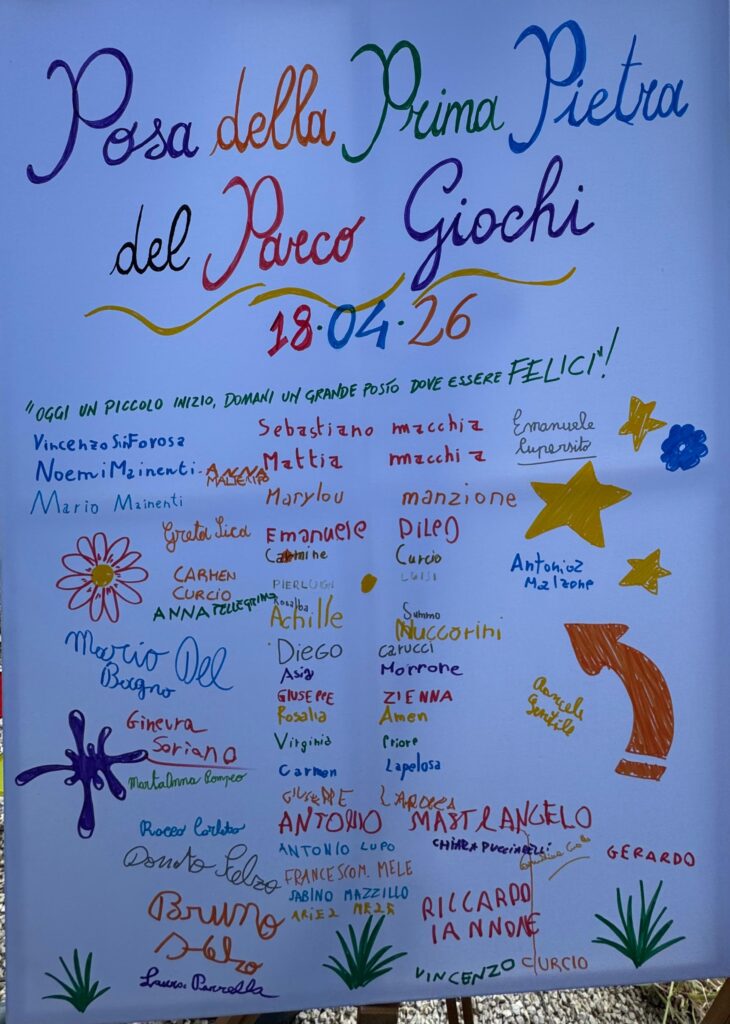 Posa della Prima Pietra
del Parco Giochi
18.04.26
"OGGI UN PICCOLO INIZIO, DOMANI UN GRANDE POSTO DOVE ESSERE FELICI"!
Vincenzo Sinforosa
Noemi Mainenti
ANNA
Mario Mainenti
Sebastiano macchia
Mattia macchia
Marylou manzione
Emanuele
Lupersito
Greta Sica
Emanuele DILEO
Carmine Curcio
CARMEN
CURCIO
PIERLUIGI LUISI
ANNA PELLEGRINO
Rosalba Summo
Achille Nuccorini
Antonio
Malzone
Mario Del
Bagno
Diego carucci
Asia Morrone
GIUSEPPE ZIENNA
Rosalia Amen
Virginia Priore
Carmen Lapelosa
GIUSEPPE
Gentile
Ginevra
Soriano
Martanna Pompeo
ANTONIO MASTRANGELO
Rocco
ANTONIO LUPO
CHIARA PUCCIARELLI
GERARDO
Donato Selzo
FRANCESCO M. MELE
SABINO MAZZILLO
Bruno
RICCARDO
IANNONE
Laura Parrella
VINCENZO CURCIO